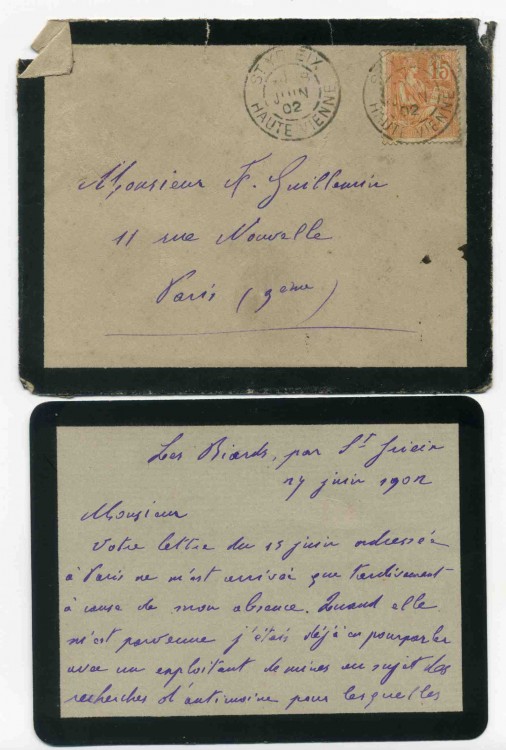 ST YRIEIX
JUIN
02
HAUTE VIENNE
15
ST
JUIN
02
HAUTE VIENNE
Monsieur F. Guillemin
11 rue Nouvelle
Paris (9ème)
Les Biards, par St Yrieix
juin 1902
Monsieur
Votre lettre du 15 juin adressée
à Paris ne m'est arrivée que tardivement
à cause de mon absence. Quand elle
m'est parvenue j'étais déjà en pourparler
avec un exploitant de mines au sujet des
recherches d'antimoine pour lesquelles